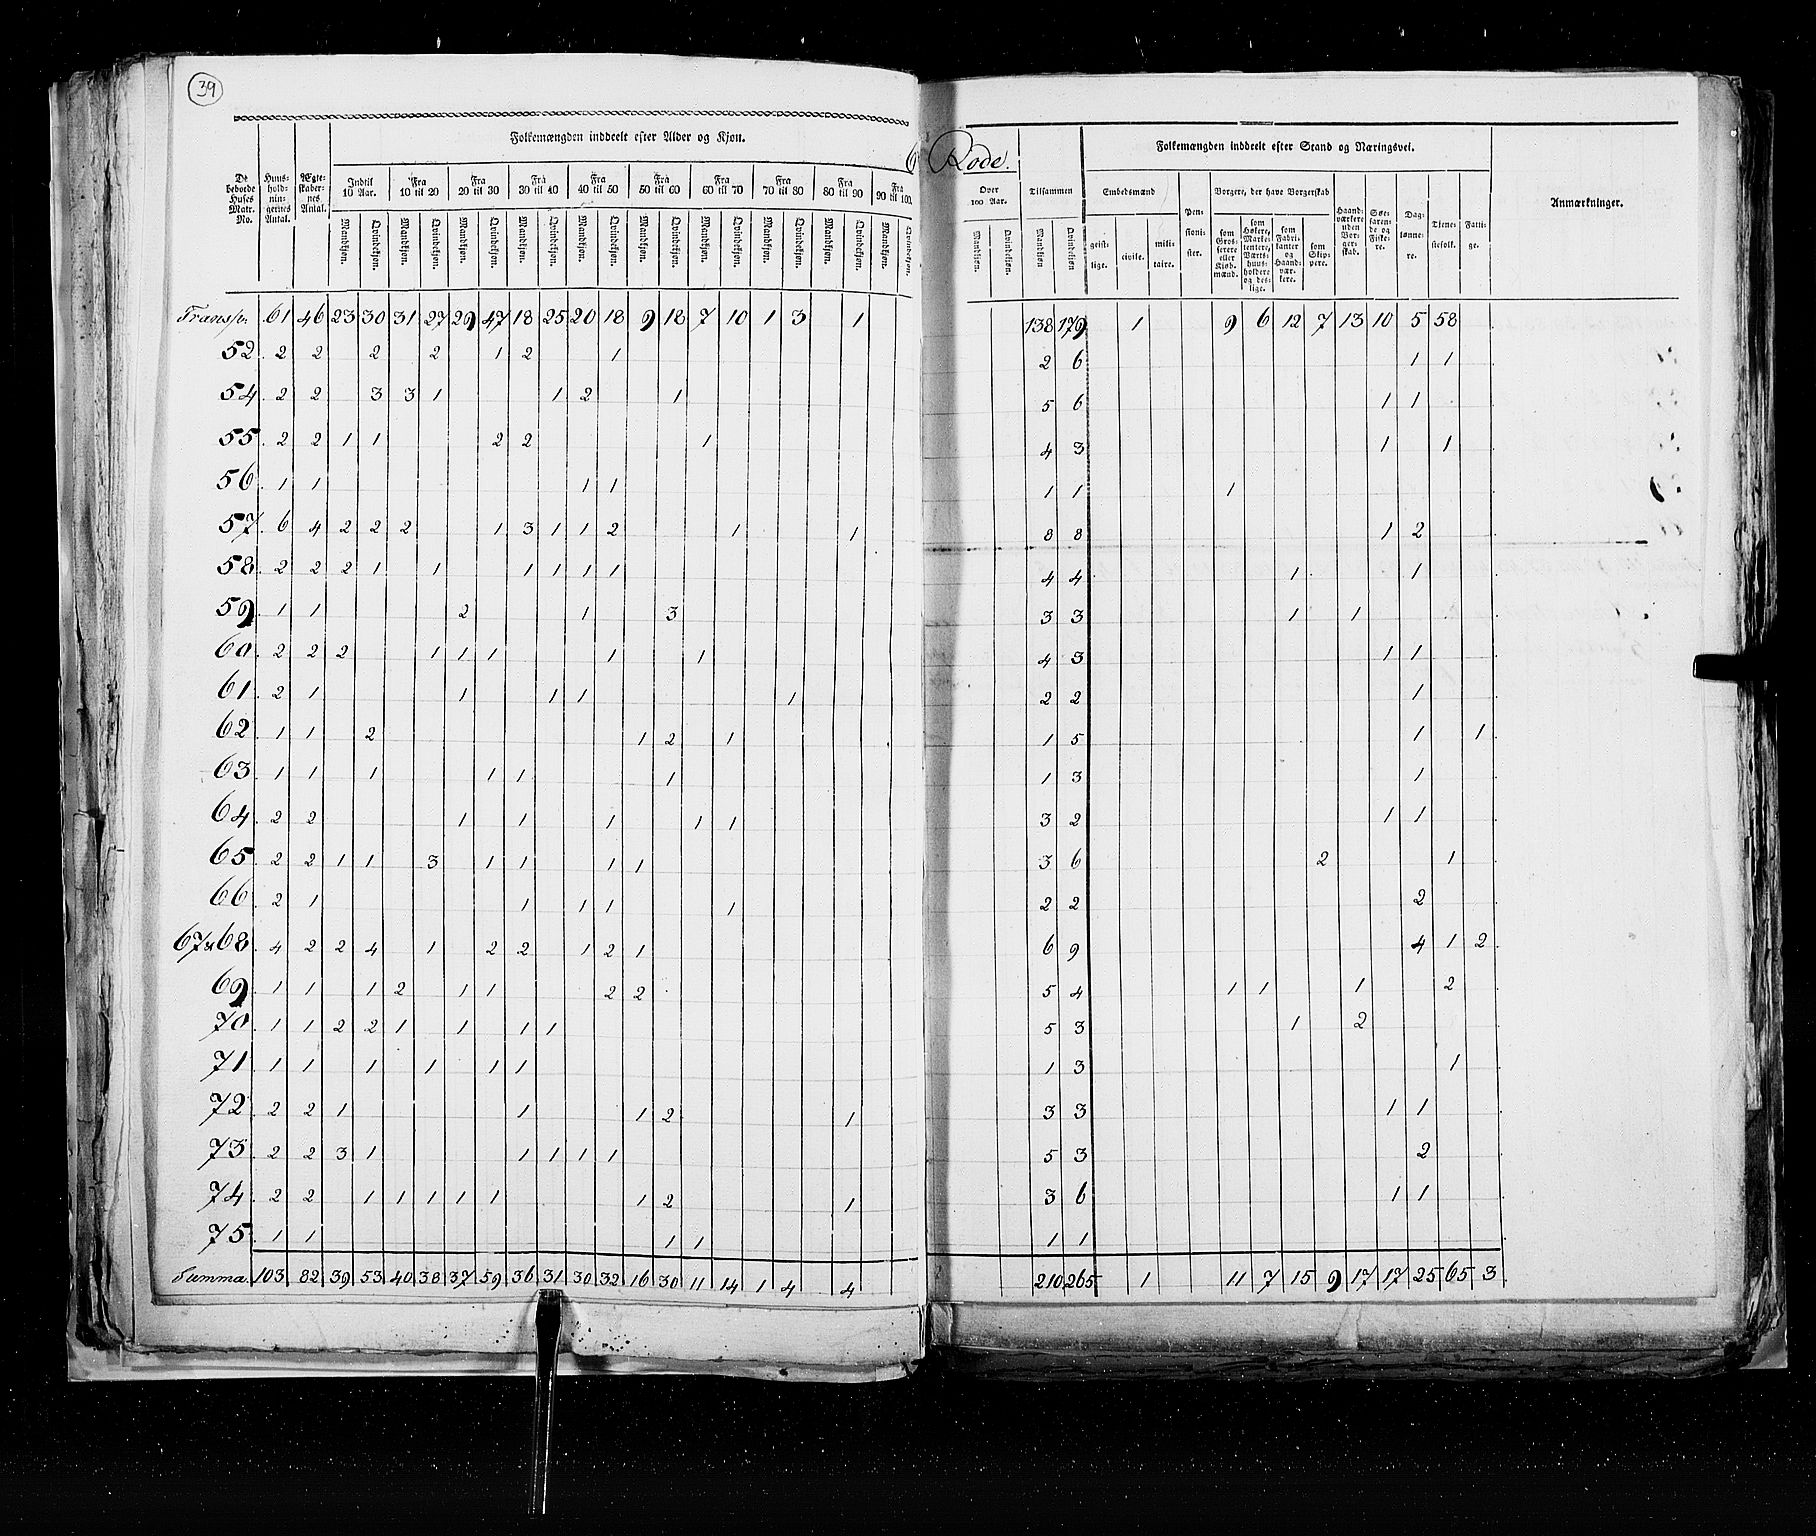 39
Folkemængden inddeelt efter Alder og Kjøn.
6 Rode.
Folkemængden inddeelt efter Stand og Næringsvei.
De beboede Huses Matr. No. | Huusholdningernes Antal. | Ægteskabernes Antal. | Indtil 10 Aar. | Fra 10 til 20 | Fra 20 til 30 | Fra 30 til 40 | Fra 40 til 50 | Fra 50 til 60 | Fra 60 til 70 | Fra 70 til 80 | Fra 80 til 90 | Fra 90 til 100. | Over 100 Aar. | Tilsammen | Embedsmænd | Pensionister. | Borgere, der have Borgerskab | Haandværkere uden Borgerskab. | Søefarende og Fiskere. | Daglønnere. | Tjenestefolk. | Fattige. | Anmærkninger.
Mandkjøn. Qvindekjøn. Mandkjøn. Qvindekjøn. Mandkjøn. Qvindekjøn. Mandkjøn. Qvindekjøn. Mandkjøn. Qvindekjøn. Mandkjøn. Qvindekjøn. Mandkjøn. Qvindekjøn. Mandkjøn. Qvindekjøn. Mandkjøn. Qvindekjøn. Mandkjøn. Qvindekjøn. Mandkjøn. Qvindekjøn. Mandkjøn Qvindekjøn | geistlige. | civile. | militaire. | som Grosserere eller Kjøbmænd. | som Høkere, Marketentere, Værtshuusholdere og deslige. | som Fabrikanter og Haandværkere. | som Skippere.
Transp. 61 46 23 30 31 27 29 47 18 25 20 18 9 18 7 10 1 3 1 138 179 1 9 6 12 7 13 10 5 58
52 2 2 2 2 1 2 1 2 6 1 1
54 2 2 3 3 1 1 2 1 5 6 1 1
55 2 2 1 1 2 2 1 4 3 1 1
56 1 1 1 1 1 1 1
57 6 4 2 2 2 1 3 1 1 2 1 1 8 8 1 2
58 2 2 2 1 1 1 1 1 1 4 4 1 1
59 1 1 2 1 3 3 3 1 1
60 2 2 2 1 1 1 1 1 4 3 1 1
61 2 1 1 1 1 1 2 2 1
62 1 1 2 1 2 1 1 5 1 1
63 1 1 1 1 1 1 1 3 1
64 2 2 1 1 1 1 1 3 2 1 1
65 2 2 1 1 3 1 1 1 1 3 6 2 1
66 2 1 1 1 1 1 2 2 2
67 & 68 4 2 2 4 1 2 2 1 2 1 6 9 4 1 2
69 1 1 1 2 1 1 2 2 5 4 1 1 1 2
70 1 1 2 2 1 1 1 1 5 3 1 2
71 1 1 1 1 1 1 1 3 1
72 2 2 1 1 1 2 1 3 3 1 1
73 2 2 3 1 1 1 1 1 5 3 2
74 2 2 1 1 1 1 1 1 2 1 3 6 1 1
75 1 1 1 1 1 1
Summa. 103 82 39 53 40 38 37 59 36 31 30 32 16 30 11 14 1 4 4 210 265 1 11 7 15 9 17 17 25 65 3